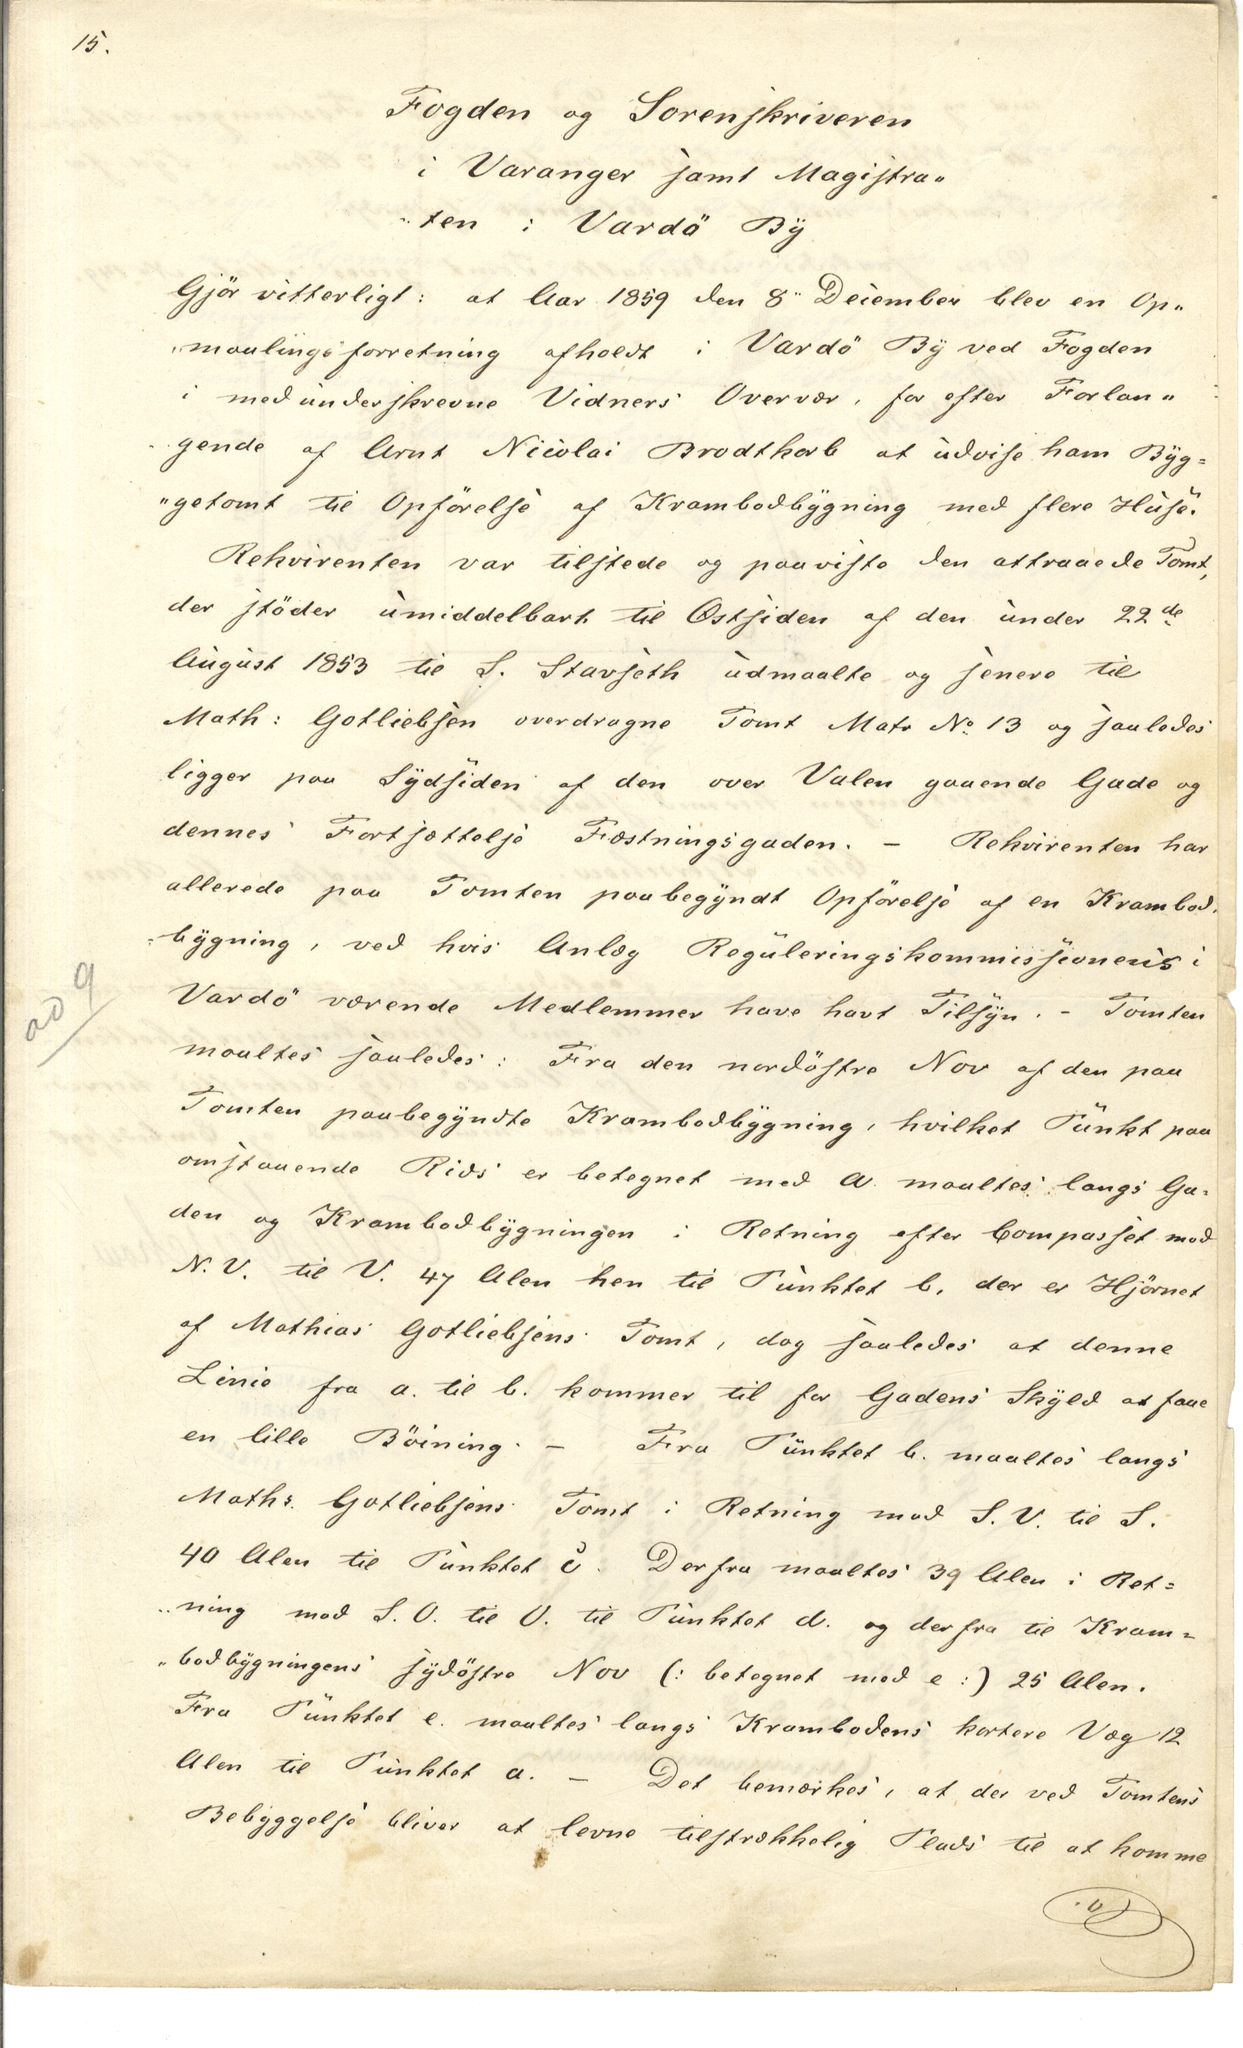 15.
Fogden og Sorenskriveren
i Varanger samt Magistra„
„ten i Vardö By
Gjör vitterligt: at Aar 1859 den 8de December blev en Op„
„maalingsforretning afholdt i Vardö By ved Fogden
i medunderskrevne Vidners Overvær, for efter Forlan„
gende af Arnt Nicolai Brodtkorb at udvise ham Byg=
„getomt til Opförelse af Krambodbygning med flere Huse.
Rekvirenten var tilstede og paaviste den attraaede Tomt,
der stöder umiddelbart til Østsiden af den under 22de
August 1853 til S. Stavseth udmaalte og senere til
Math: Gotliebsen overdragne Tomt Matr No 13 og saaledes
ligger paa Sydsiden af den over Valen gaaende Gade og
dennes Fortsættelse Fæstningsgaden. – Rekvirenten har
allerede paa Tomten paabegyndt Opförelse af en Krambod„
„bygning, ved hvis Anlæg Reguleringskommissionens i
Vardö værende Medlemmer have havt Tilsyn. – Tomten
maaltes saaledes: Fra den nordöstre Nov af den paa
Tomten paabegyndte Krambodbygning, hvilket Punkt paa
omstaaende Rids er betegnet med a. maaltes langs Ga=
den og Krambodbygningen i Retning efter Compasset mod
N. V. til V. 47 Alen hen til Punktet b. der er Hjörnet
af Mathias Gotliebsens Tomt, dog saaledes at denne
Linie fra a. til b. kommer til for Gadens Skyld at faae
en lille Böining. – Fra Punktet b. maaltes langs
Maths. Gotliebsens Tomt i Retning mod S. V. til S.
40 Alen til Punktet c. Derfra maaltes 39 Alen i Ret=
„ning mod S. O. til O. til Punktet d. og derfra til Kram=
„bodbygningens sydöstre Nov (: betegnet med e :) 25 Alen.
Fra Punktet e. maaltes langs Krambodens kortere Væg 12
Alen til Punktet a. – Det bemærkes, at der ved Tomtens
Bebyggelse bliver at levne tilstrækkelig Plads til at komme
ad 9